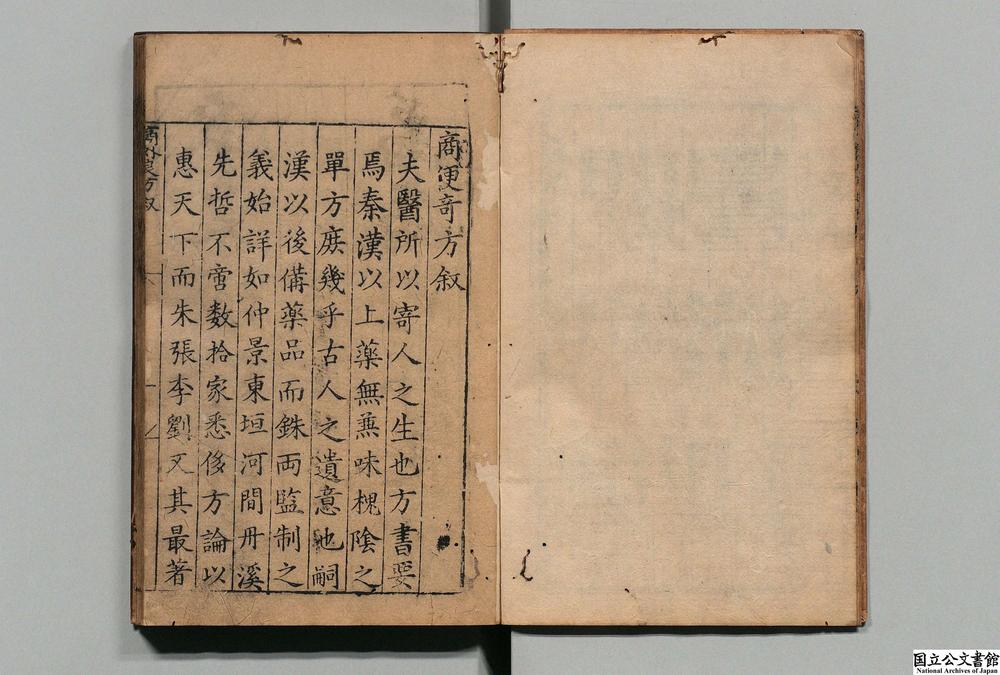 商便奇方叙
夫醫所以寄人之生也方書要
焉秦漢以上藥無兼味槐陰之
單方庶幾乎古人之遺意也嗣
漢以後備藥品而銖両監制之
義始詳如仲景東垣河間丹溪
先哲不啻数拾家悉侈方論以
惠天下而朱張李劉又其最著
方叙
国立公文書館
National Archives of Japan